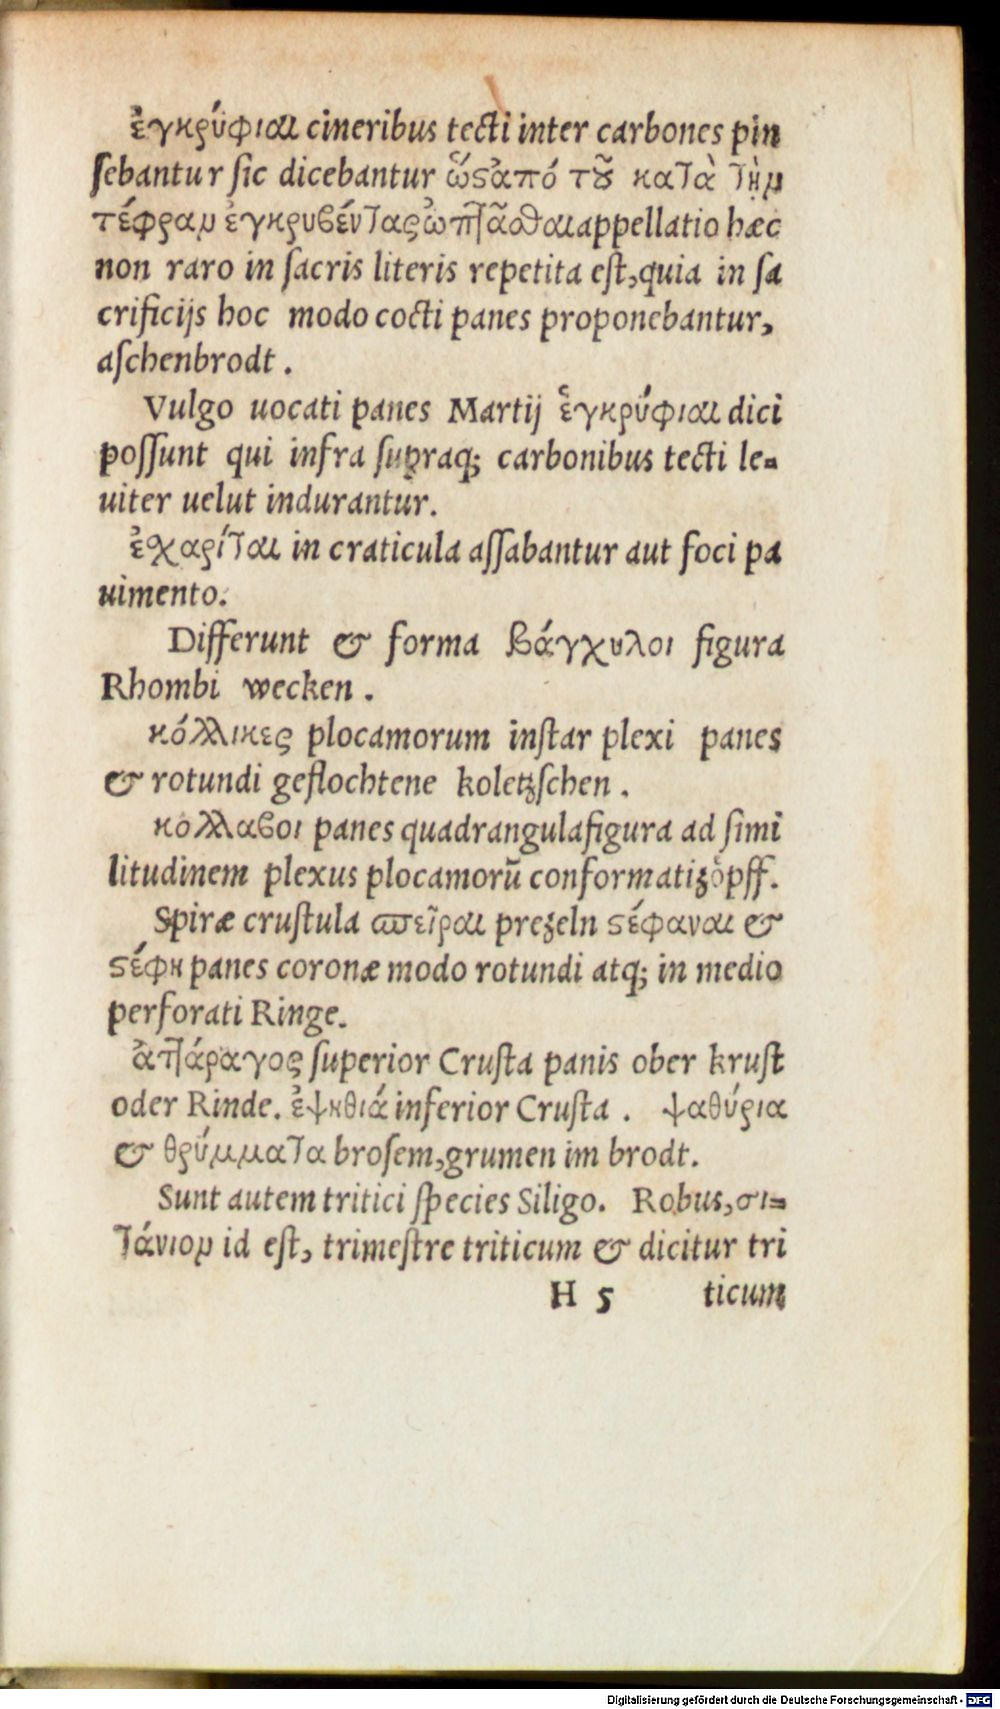 ἐγκρύφιαι cineribus tecti inter carbones pin
sebantur sic dicebantur ὥς ἀπό τοῦ κατὰ τὴν
τέφραν ἐγκρυβέντας ὠπτᾶσθαι appellatio hæc
non raro in sacris literis repetita est, quia in sa
crificijs hoc modo cocti panes proponebantur,
aschenbrodt.
Vulgo uocati panes Martij ἐγκρύφιαι dici
possunt qui infra supraq; carbonibus tecti le-
uiter uelut indurantur.
ἐχαρίται in craticula assabantur aut foci pa
uimento.
Differunt & forma βάγχυλοι figura
Rhombi wecken.
κόλλικες plocamorum instar plexi panes
& rotundi geflochtene koletzschen.
κολλαβοι panes quadrangula figura ad simi
litudinem plexus plocamorũ conformati zöpff.
Spiræ crustula σπεῖραι prezeln στέφαναι &
στέφη panes coronæ modo rotundi atq; in medio
perforati Ringe.
ἀτάραγος superior Crusta panis ober krust
oder Rinde. ἐψηθιά inferior Crusta. ψαθύρια
& θρύμματα brosem, grumen im brodt.
Sunt autem tritici species Siligo. Robus, σι-
τάνιον id est, trimestre triticum & dicitur tri
H 5 ticum
Digitalisierung gefördert durch die Deutsche Forschungsgemeinschaft - DFG